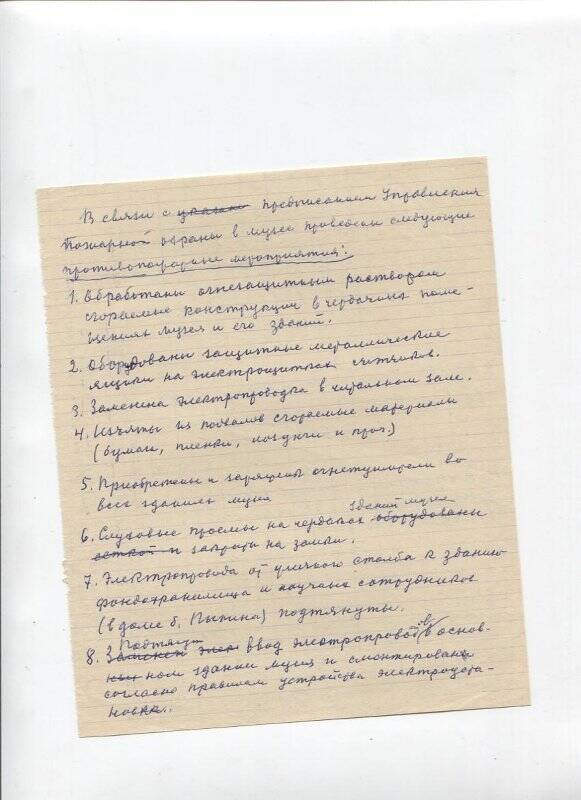 В связи с указан предписанием Управления
Пожарной охраны в музее проведены следующие
противопожарные мероприятия:
1. Обработаны огнезащитным раствором
сгораемые конструкции в чердачных поме-
щениях музея и его зданий.
2. Оборудованы защитные металлические
ящики на электрощитках счетчиков.
3. Заменена электропроводка в зале.
4. Изъяты из подвалов сгораемые материалы
(бумаги, пленки, и проч.)
5. Приобретены и заряжены огнетушители во
всех зданиях музея
зданий музея
6. Слуховые проемы на чердаках оборудованы
и заперты на замки.
7. Электропровода от уличного столба к зданию
фондохранилища и научных сотрудников
(в доме б. Пыпина) подтянуты.
Подтянут
8. Заменен ввод электропроводов в основ-
ном здании музея и смонтированы
согласно правилам устройства электроуста-
новки.